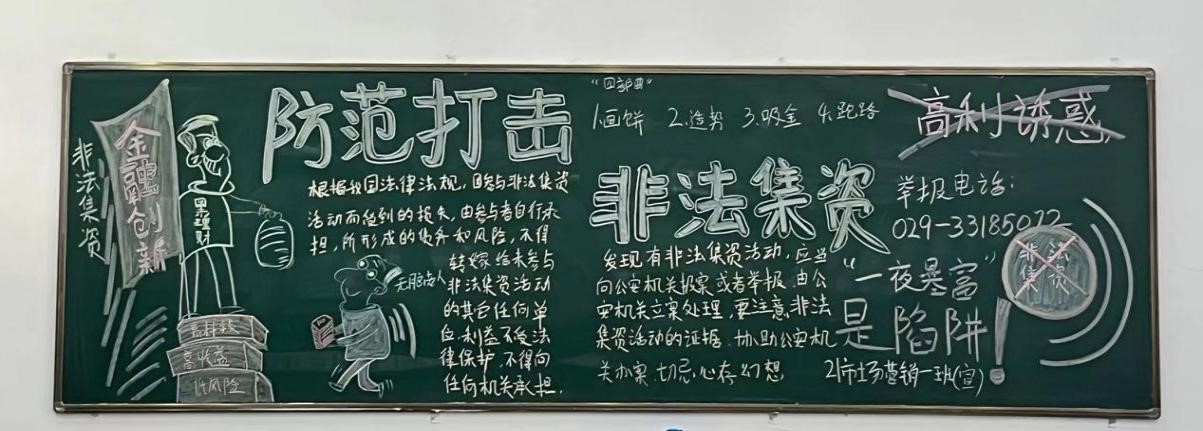 非法集资
金融创新
某理财
高科技
高收益
低风险
防范打击
非法集资
根据我国法律法规,因参与非法集资
活动而受到的损失,由参与者自行承
担,所形成的债务和风险,不得
转嫁给未参与
非法集资活动
的其它任何单
位.利益不受法
律保护,不得向
任何机关承担.
"四部曲"
1.画饼 2.造势 3.吸金 4.跑路
发现有非法集资活动,应当
向公安机关报案或者举报.由公
安机关立案处理,要注意非法
集资活动的证据,协助公安机
关办案.切忌心存幻想
高利诱惑
举报电话:
029-33185072
"一夜暴富"
是陷阱!
非法
集资
21市场营销一班(宣)